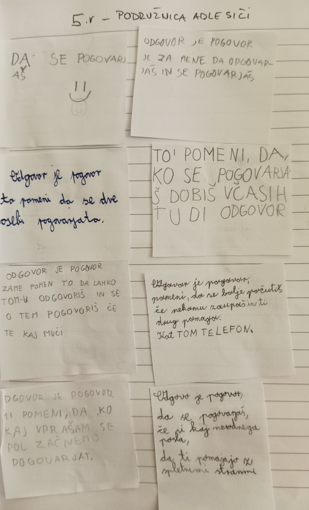 5.r - PODRUŽNICA ADLEŠIČI
DA SE POGOVARJ
AŠ
ODGOVOR JE POGOVOR
JE ZA MENE DA ODGOVAR
JAŠ IN SE POGOVARJAŠ
Odgovor je pogovor
to pomeni da se dve
osebi pogovarjata.
TO POMENI, DA,
KO SE POGOVARJA
Š DOBIŠ VČASIH
TUDI ODGOVOR
ODGOVOR JE POGOVOR
ZAME POMEN TO DA LAHKO
TOM-U ODGOVORIŠ IN SE
O TEM POGOVORIŠ ČE
TE KAJ MUČI
Odgovor je pogovor,
pomeni, da se bolje počutiš,
če nekomu zaupaš in ti
drug pomaga.
Kot TOM TELEFON.
ODGOVOR JE POGOVOR
TI POMENI, DA KO
KAJ VPRAŠAM SE
POL ZAČNEMO
POGOVARJAT.
Odgovor je pogovor,
da se pogovarjaš,
če je kaj narobe
da ti pomagajo z
spletnimi stranmi